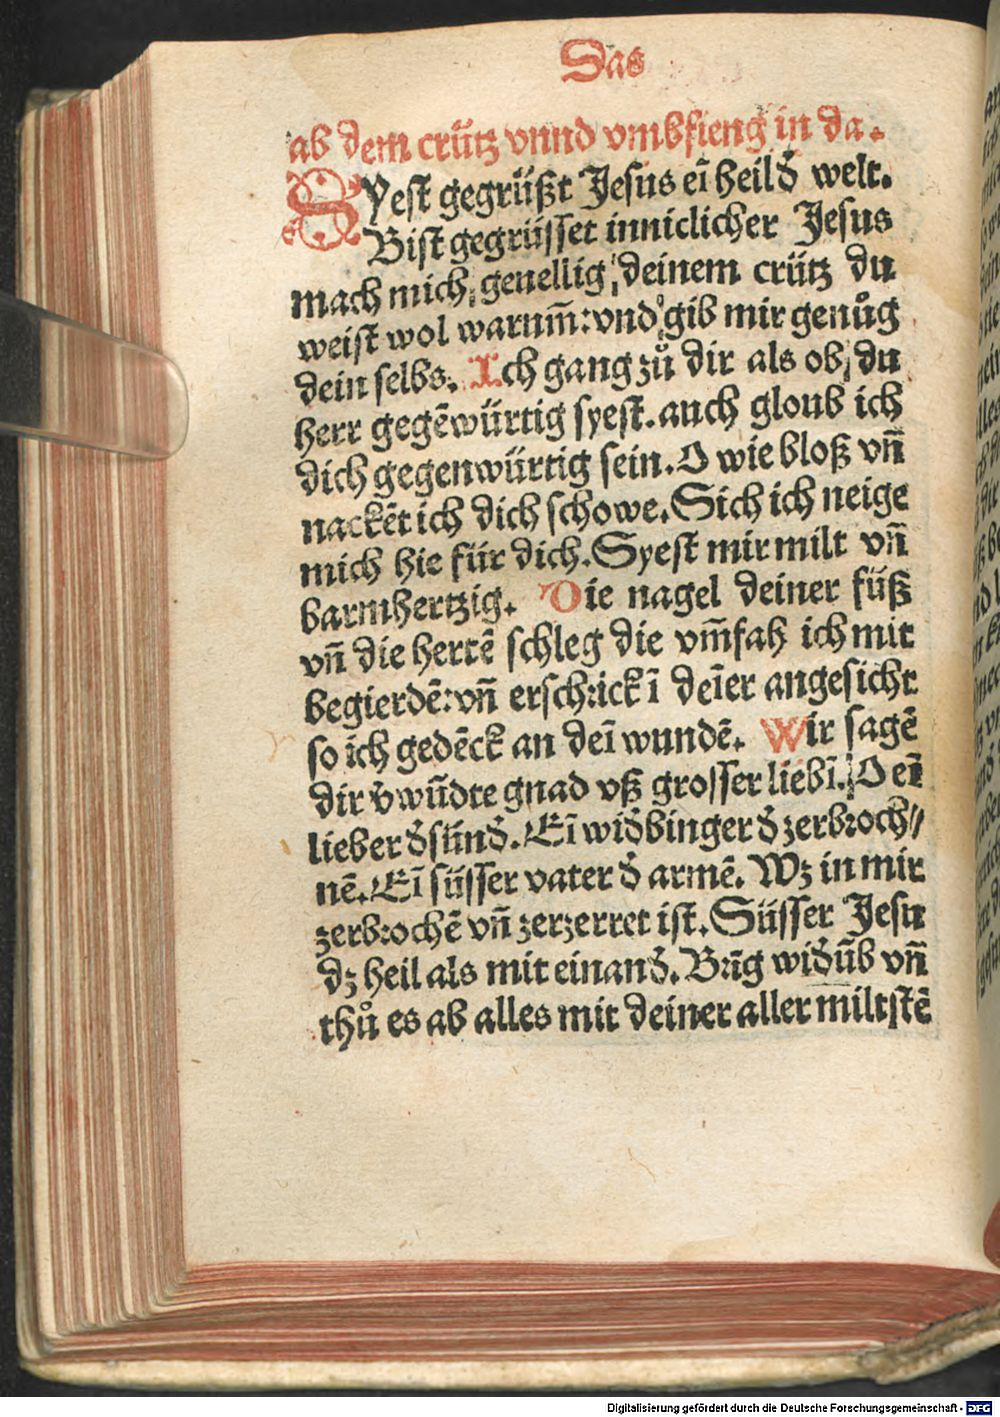 Das
ab dem crütz vnnd vmbfieng in da.
SYest gegrüßt Jesus eī heil d̄ welt.
Bist gegrüsset inniclicher Jesus
mach mich genellig deinem crütz du
weist wol warum̄: vnd gib mir genůg
dein selbs. Ich gang zů dir als ob du
herr gegēwürtig syest. auch gloub ich
dich gegenwürtig sein. O wie bloß vn̄
nackēt ich dich schowe. Sich ich neige
mich hie für dich. Syest mir milt vn̄
barmhertzig. Die nagel deiner füß
vn̄ die hertē schleg die vm̄fah ich mit
begierdē: vn̄ erschrick ī deīer angesicht
so ich gedēck an deī wundē. Wir sagē
dir v̄wūdte gnad vß grosser liebī. O eī
lieber d̄ sünd̄. Eī wid̄binger d̄ zerbroch⸗
nē. Eī süsser vater d̄ armē. Wz in mir
zerbrochē vn̄ zerzerret ist. Süsser Jesu
dz heil als mit einand̄. Brīg wid̄ūb vn̄
thů es ab alles mit deiner aller miltstē
Digitalisierung gefördert durch die Deutsche Forschungsgemeinschaft - DFG